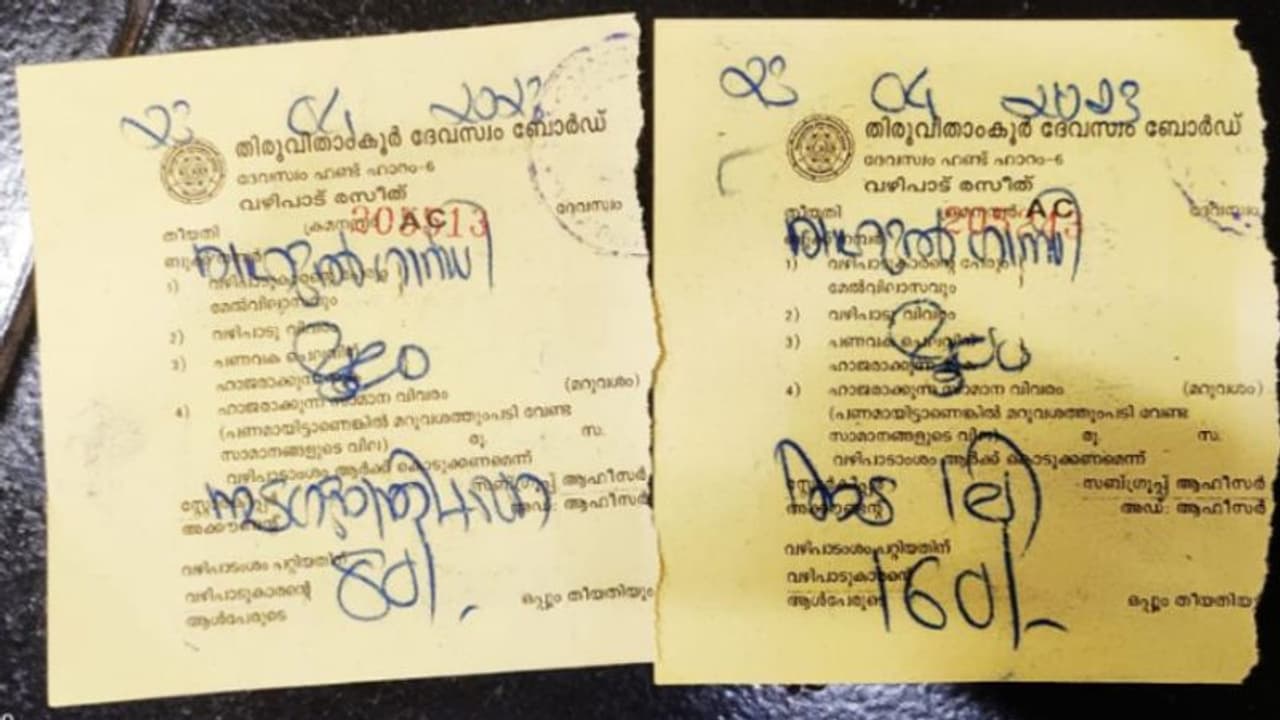 23 04 2023
തിരുവിതാംകൂർ ദേവസ്വം ബോർഡ്
ദേവസ്വം ഹണ്ട് ഫാറം-6
വഴിപാട് രസീത്
ദേവസ്വം
തീയതി ക്രമനമ്പർ A.C 305513
രാഹുൽ ഗാന്ധി
1)
മേൽവിലാസവും
2) വഴിപാടു വിവരം
മൂലം
3) പണവക ചെലവിന്
ഹാജരാക്കുന്ന
4) ഹാജരാക്കുന്ന സാമാന വിവരം (മറുവശം)
(പണമായിട്ടാണെങ്കിൽ മറുവശത്തുംപടി വേണ്ട
സാമാനങ്ങളുടെ വില) രൂ. സ.
വഴിപാടാംശം ആർക്ക് കൊടുക്കണമെന്ന്
സബ്ഗ്രൂപ്പ് ആഫീസർ
അക്കൗണ്ടന്റ് അഡ്: ആഫീസർ
വഴിപാടംശം പറ്റിയതിന്
വഴിപാടുകാരന്റെ
ആൾപേരുടെ ഒപ്പും തീയതിയും
80/-
23 04 2023
തിരുവിതാംകൂർ ദേവസ്വം ബോർഡ്
ദേവസ്വം ഹണ്ട് ഫാറം-6
വഴിപാട് രസീത്
ദേവസ്വം
തീയതി A.C
രാഹുൽ ഗാന്ധി
1) വഴിപാടുകാരന്റെ പേരും
മേൽവിലാസവും
2) വഴിപാടു വിവരം
മൂലം
3) പണവക ചെലവിന്
ഹാജരാക്കുന്ന
4) ഹാജരാക്കുന്ന സാമാന വിവരം (മറുവശം)
(പണമായിട്ടാണെങ്കിൽ മറുവശത്തുംപടി വേണ്ട
സാമാനങ്ങളുടെ വില) രൂ. സ.
വഴിപാടാംശം ആർക്ക് കൊടുക്കണമെന്ന്
സബ്ഗ്രൂപ്പ് ആഫീസർ
അക്കൗണ്ടന്റ് അഡ്: ആഫീസർ
വഴിപാടംശം പറ്റിയതിന്
വഴിപാടുകാരന്റെ
ആൾപേരുടെ ഒപ്പും തീയതിയു
160/-